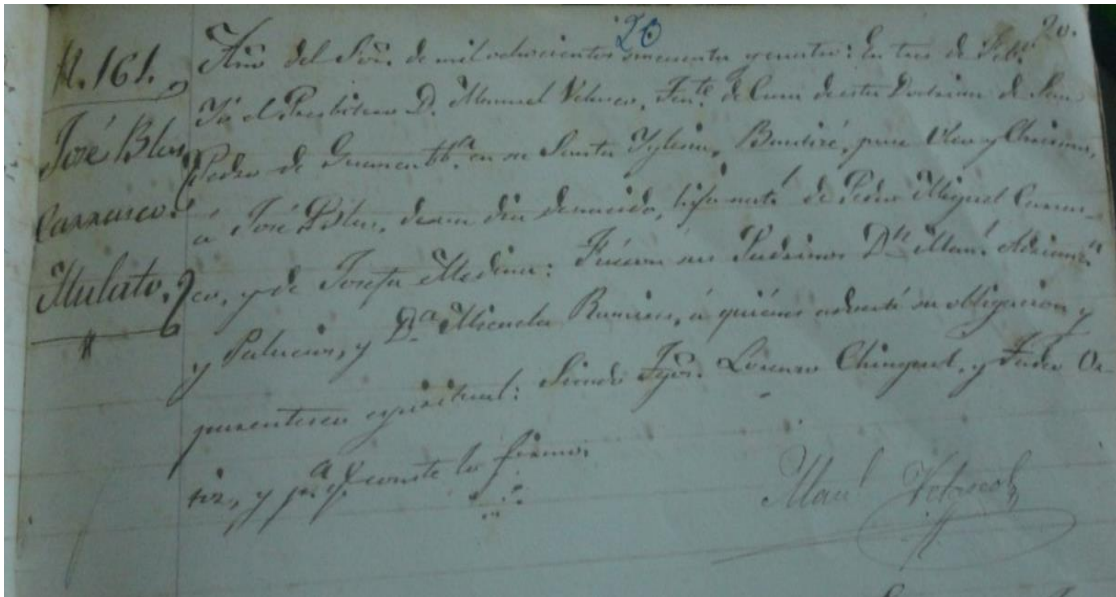 20
20.
N. 161.
José Blas
Carrasco.
Mulato.
Año del Sór. de mil ochocientos cincuenta y cuatro: En tres de Feb.
Yo el Presbitero D. Manuel Velasco, Ten.te de Cura de esta Doctrina de San
Pedro de en su Santa Yglesia, Bautizé, puse Oleo y Chrisma,
á José Blas, de un dia de nacido, hijo nat.l de Pedro Miguel Carras-
co, y de Josefa Medina: Fueron sus Padrinos D.n Man.l
y Palacios, y D.a Micaela Ramires, á quiénes advertí su obligacion y
parentesco espiritual: Siendo Tgos. Lorenzo Chinguel, y Pedro Or-
tiz, y p.a q.e conste lo firmo.
Man.l Velasco